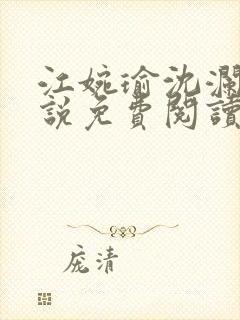 江婉瑜沈瀾
說免費閱讀
庞清